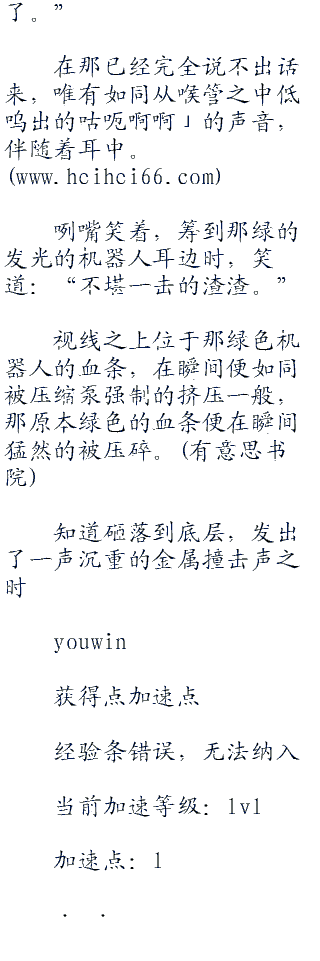 了。”
在那已经完全说不出话
来，唯有如同从喉管之中低
呜出的咕呃啊啊」的声音，
伴随着耳中。
(www.hcihci66.com)
咧嘴笑着，筹到那绿的
发光的机器人耳边时，笑
道：“不堪一击的渣渣。”
视线之上位于那绿色机
器人的血条，在瞬间便如同
被压缩泵强制的挤压一般，
那原本绿色的血条便在瞬间
猛然的被压碎。(有意思书
院)
知道砸落到底层，发出
了一声沉重的金属撞击声之
时
youwin
获得点加速点
经验条错误，无法纳入
当前加速等级：lvl
加速点：1
． ．